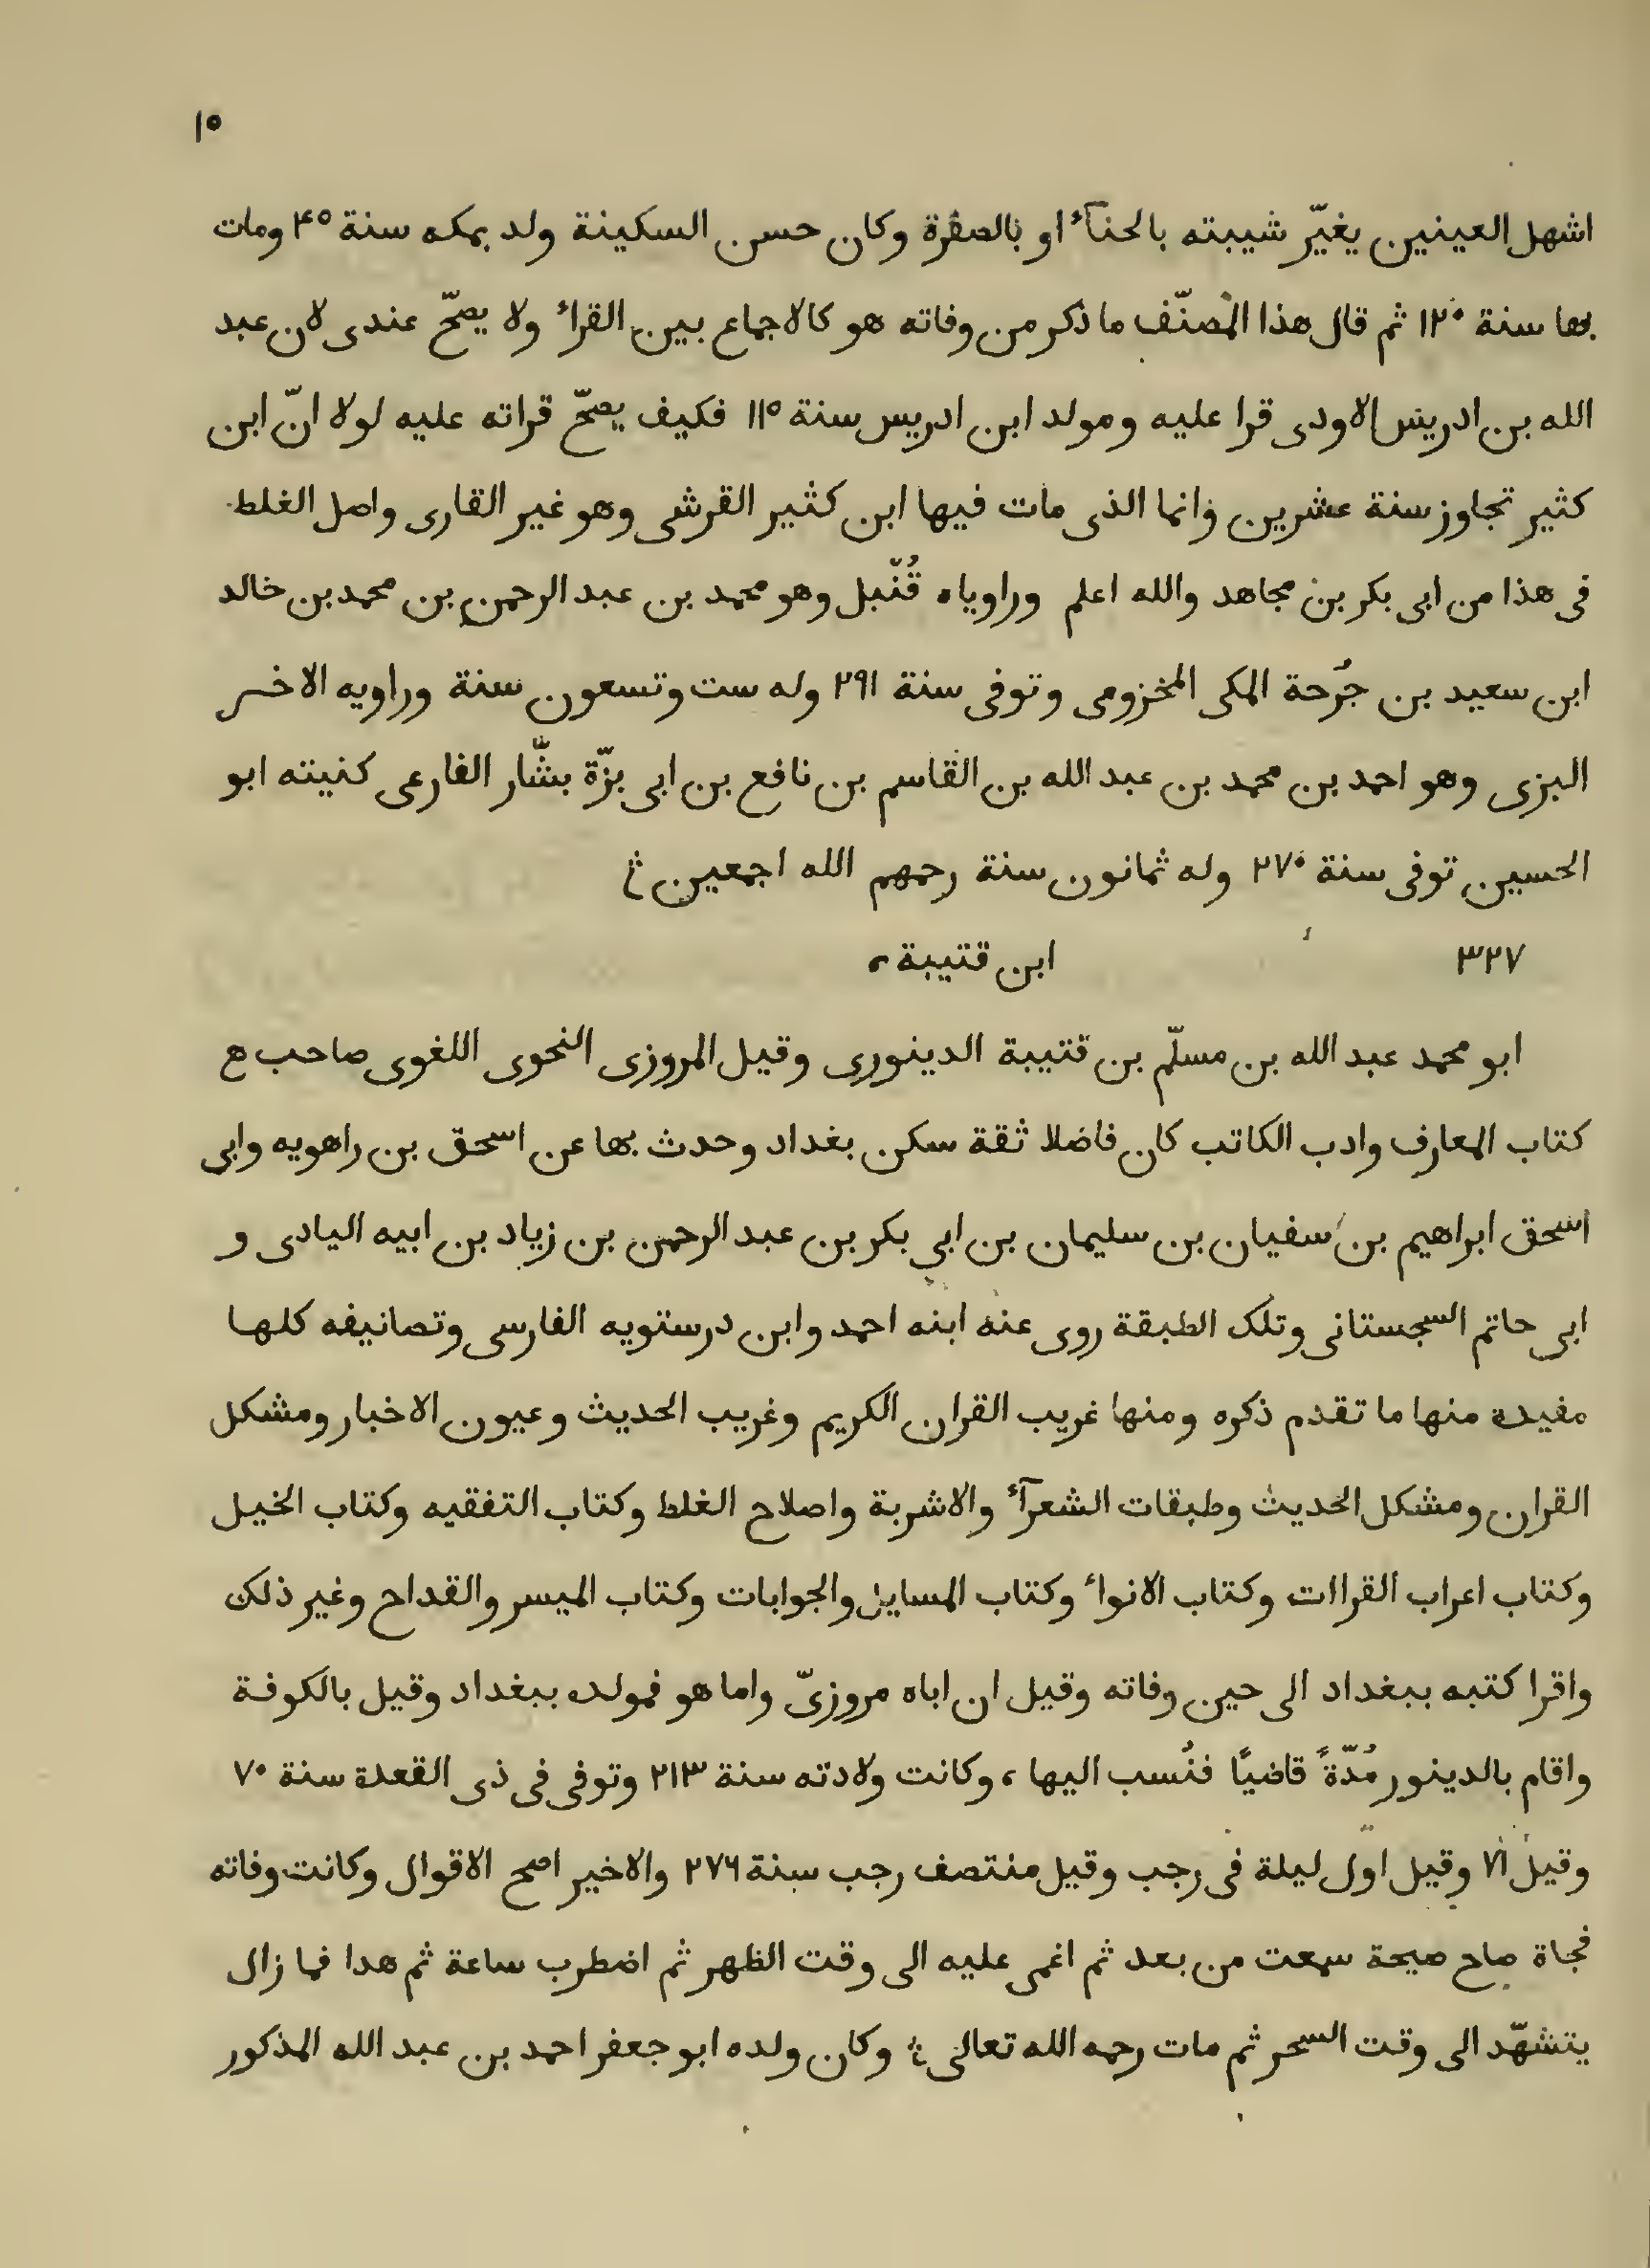 ١٥
اشهل العينين يغيّر شيبته بالحنآء او بالصفرة وكان حسن السكينة ولد بمكه سنة ۴٥ ومات
بها سنة ١٢٠ ثم قال هذا المصنّف ما ذكر من وفاته هو كالاجماع بين القراء ولا يصحّ عندى لان عبد
الله بن ادريس الاودى قرا عليه ومولد ابن ادريس سنة ١١٥ فكيف يصحّ قراته عليه لولا انّ ابن
كثير تجاوز سنة عشرين وانما الذى مات فيها ابن كثير القرشى وهو غير القارى واصل الغلط
فى هذا من ابى بكر بن مجاهد والله اعلم وراوياه قُنّبل وهو محمد بن عبد الرحمن بن محمد بن خالد
ابن سعيد بن جُرحة المكى المخزومى وتوفى سنة ٢٩١ وله ست وتسعون سنة وراويه الاخر
البزى وهو احمد بن محمد بن عبد الله بن القاسم بن نافع بن ابى بزّة بشّار الفارعى كنيته ابو
الحسين توفى سنة ٢٧٠ وله ثمانون سنة رحمهم الله اجمعين
٣٢٧ ابن قتيبة،
ابو محمد عبد الله بن مسلّم بن قتيبة الدينورى وقيل المروزى النحوى اللغوى صاحب ه
كتاب المعارف وادب الكاتب كان فاضلا ثقة سكن بغداد وحدث بها عن اسحق بن راهويه وابى
اسحق ابراهيم بن سفيان بن سليمان بن ابى بكر بن عبد الرحمن بن زياد بن ابيه اليادى و
ابى حاتم السجستانى وتلك الطبقة روى عنه ابنه احمد وابن درستويه الفارسى وتصانيفه كلها
مفيدة منها ما تقدم ذكره ومنها غريب القران الكريم وغريب الحديث وعيون الاخبار ومشكل
القران ومشكل الحديث وطبقات الشعرآء والاشربة واصلاح الغلط وكتاب التفقيه وكتاب الخيل
وكتاب اعراب القراات وكتاب الانواء وكتاب المسايل والجوابات وكتاب الميسر والقداح وغير ذلك
واقرا كتبه ببغداد الى حين وفاته وقيل ان اباه مروزىّ واما هو فمولده ببغداد وقيل بالكوفة
واقام بالدينور مُدّةً قاضيًا فنُسب اليها، وكانت ولادته سنة ٢١٣ وتوفى فى ذى القعدة سنة ٧٠
وقيل ٧١ وقيل اول ليلة فى رجب وقيل منتصف رجب سنة ٢٧٦ والاخير اصح الاقوال وكانت وفاته
فجاة صاح صيحة سمعت من بعد ثم اغمى عليه الى وقت الظهر ثم اضطرب ساعة ثم هدا فما زال
يتشهّد الى وقت السحر ثم مات رحمه الله تعالى وكان ولده ابو جعفر احمد بن عبد الله المذكور